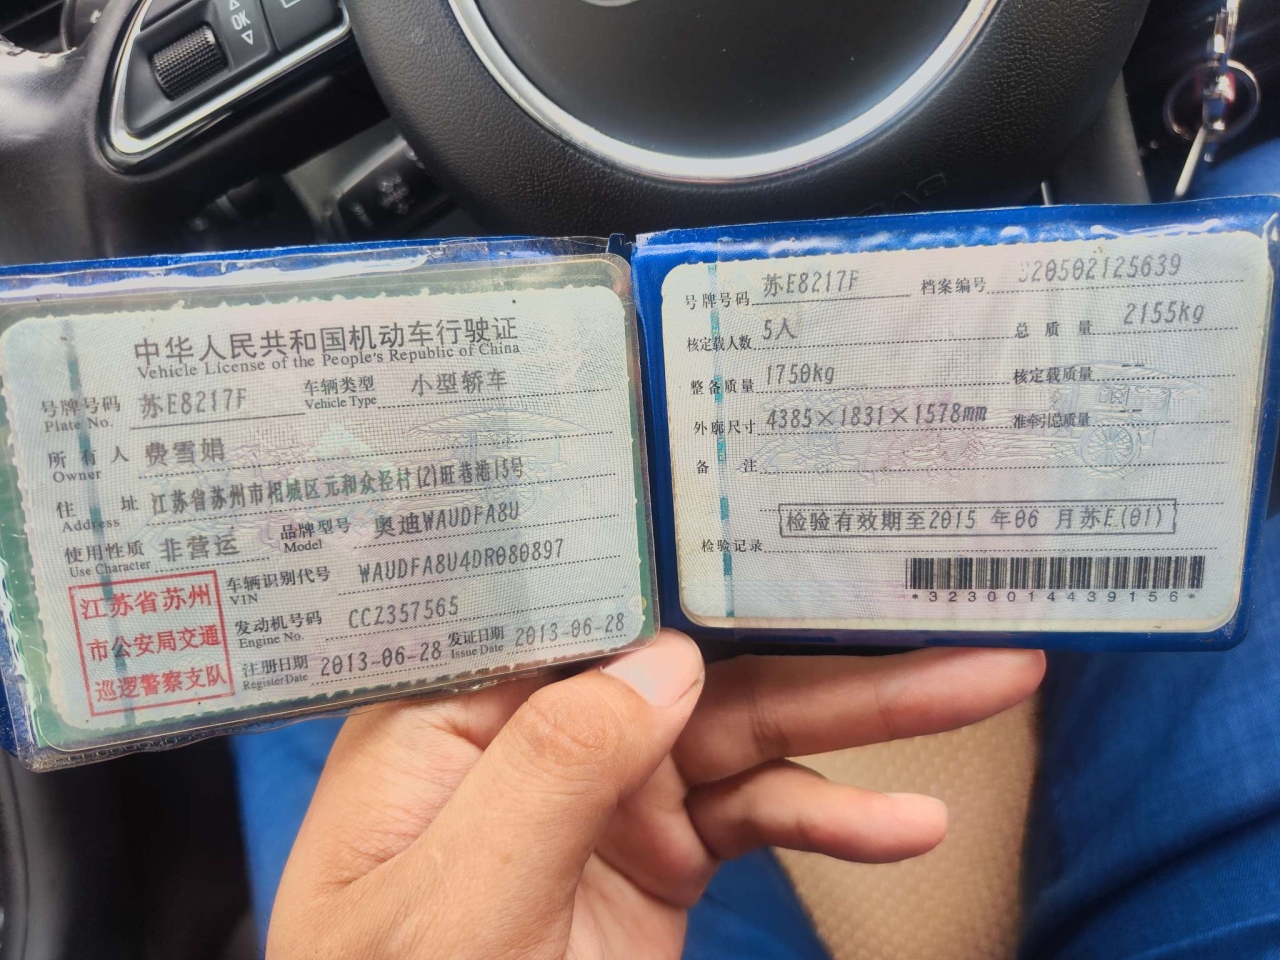 OK
中华人民共和国机动车行驶证
Vehicle License of the People's Republic of China
号牌号码 苏E8217F 车辆类型 小型轿车
Plate No. Vehicle Type
所有人 费雪娟
Owner
住址 江苏省苏州市相城区元和众泾村(2)旺巷港15号
Address
使用性质 非营运 品牌型号 奥迪WAUDFA8U
Use Character Model
车辆识别代号 WAUDFA8U4DR080897
VIN
发动机号码 CCZ357565
Engine No.
注册日期 2013-06-28 发证日期 2013-06-28
Register Date Issue Date
江苏省苏州
市公安局交通
巡逻警察支队
号牌号码 苏E8217F 档案编号 320502125639
核定载人数 5人 总质量 2155kg
整备质量 1750kg 核定载质量 --
外廓尺寸 4385×1831×1578mm 准牵引总质量 --
备注
检验有效期至2015 年06 月苏E(01)
检验记录
*3230014439156*